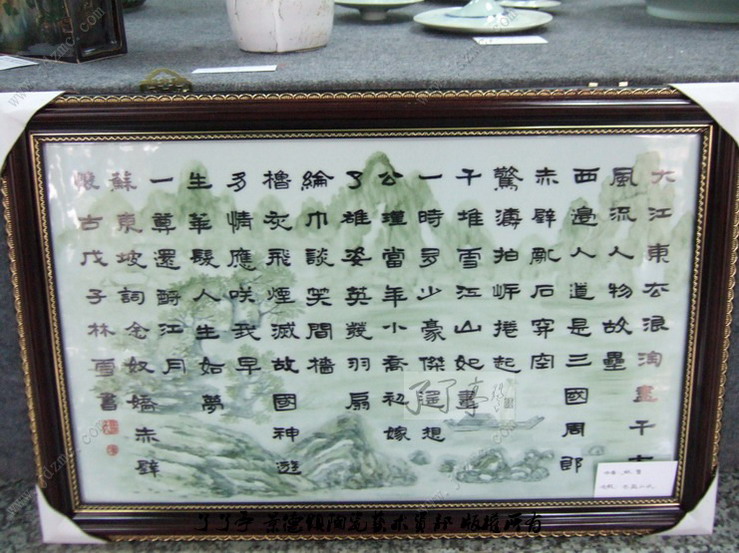 大江東去浪淘盡千古
風流人物故壘
西邊人道是三國周郎
赤壁亂石穿空
驚濤拍岸捲起
千堆雪江山如畫
一時多少豪傑遙想
公瑾當年小喬初嫁
了雄姿英發羽扇
綸巾談笑間檣
櫓灰飛煙滅故國神遊
多情應咲我早
生華髮人生如夢
一尊還酹江月
蘇東坡詞念奴嬌赤壁
懷古戊子林雪書
www.jdzmc.com
版权所有